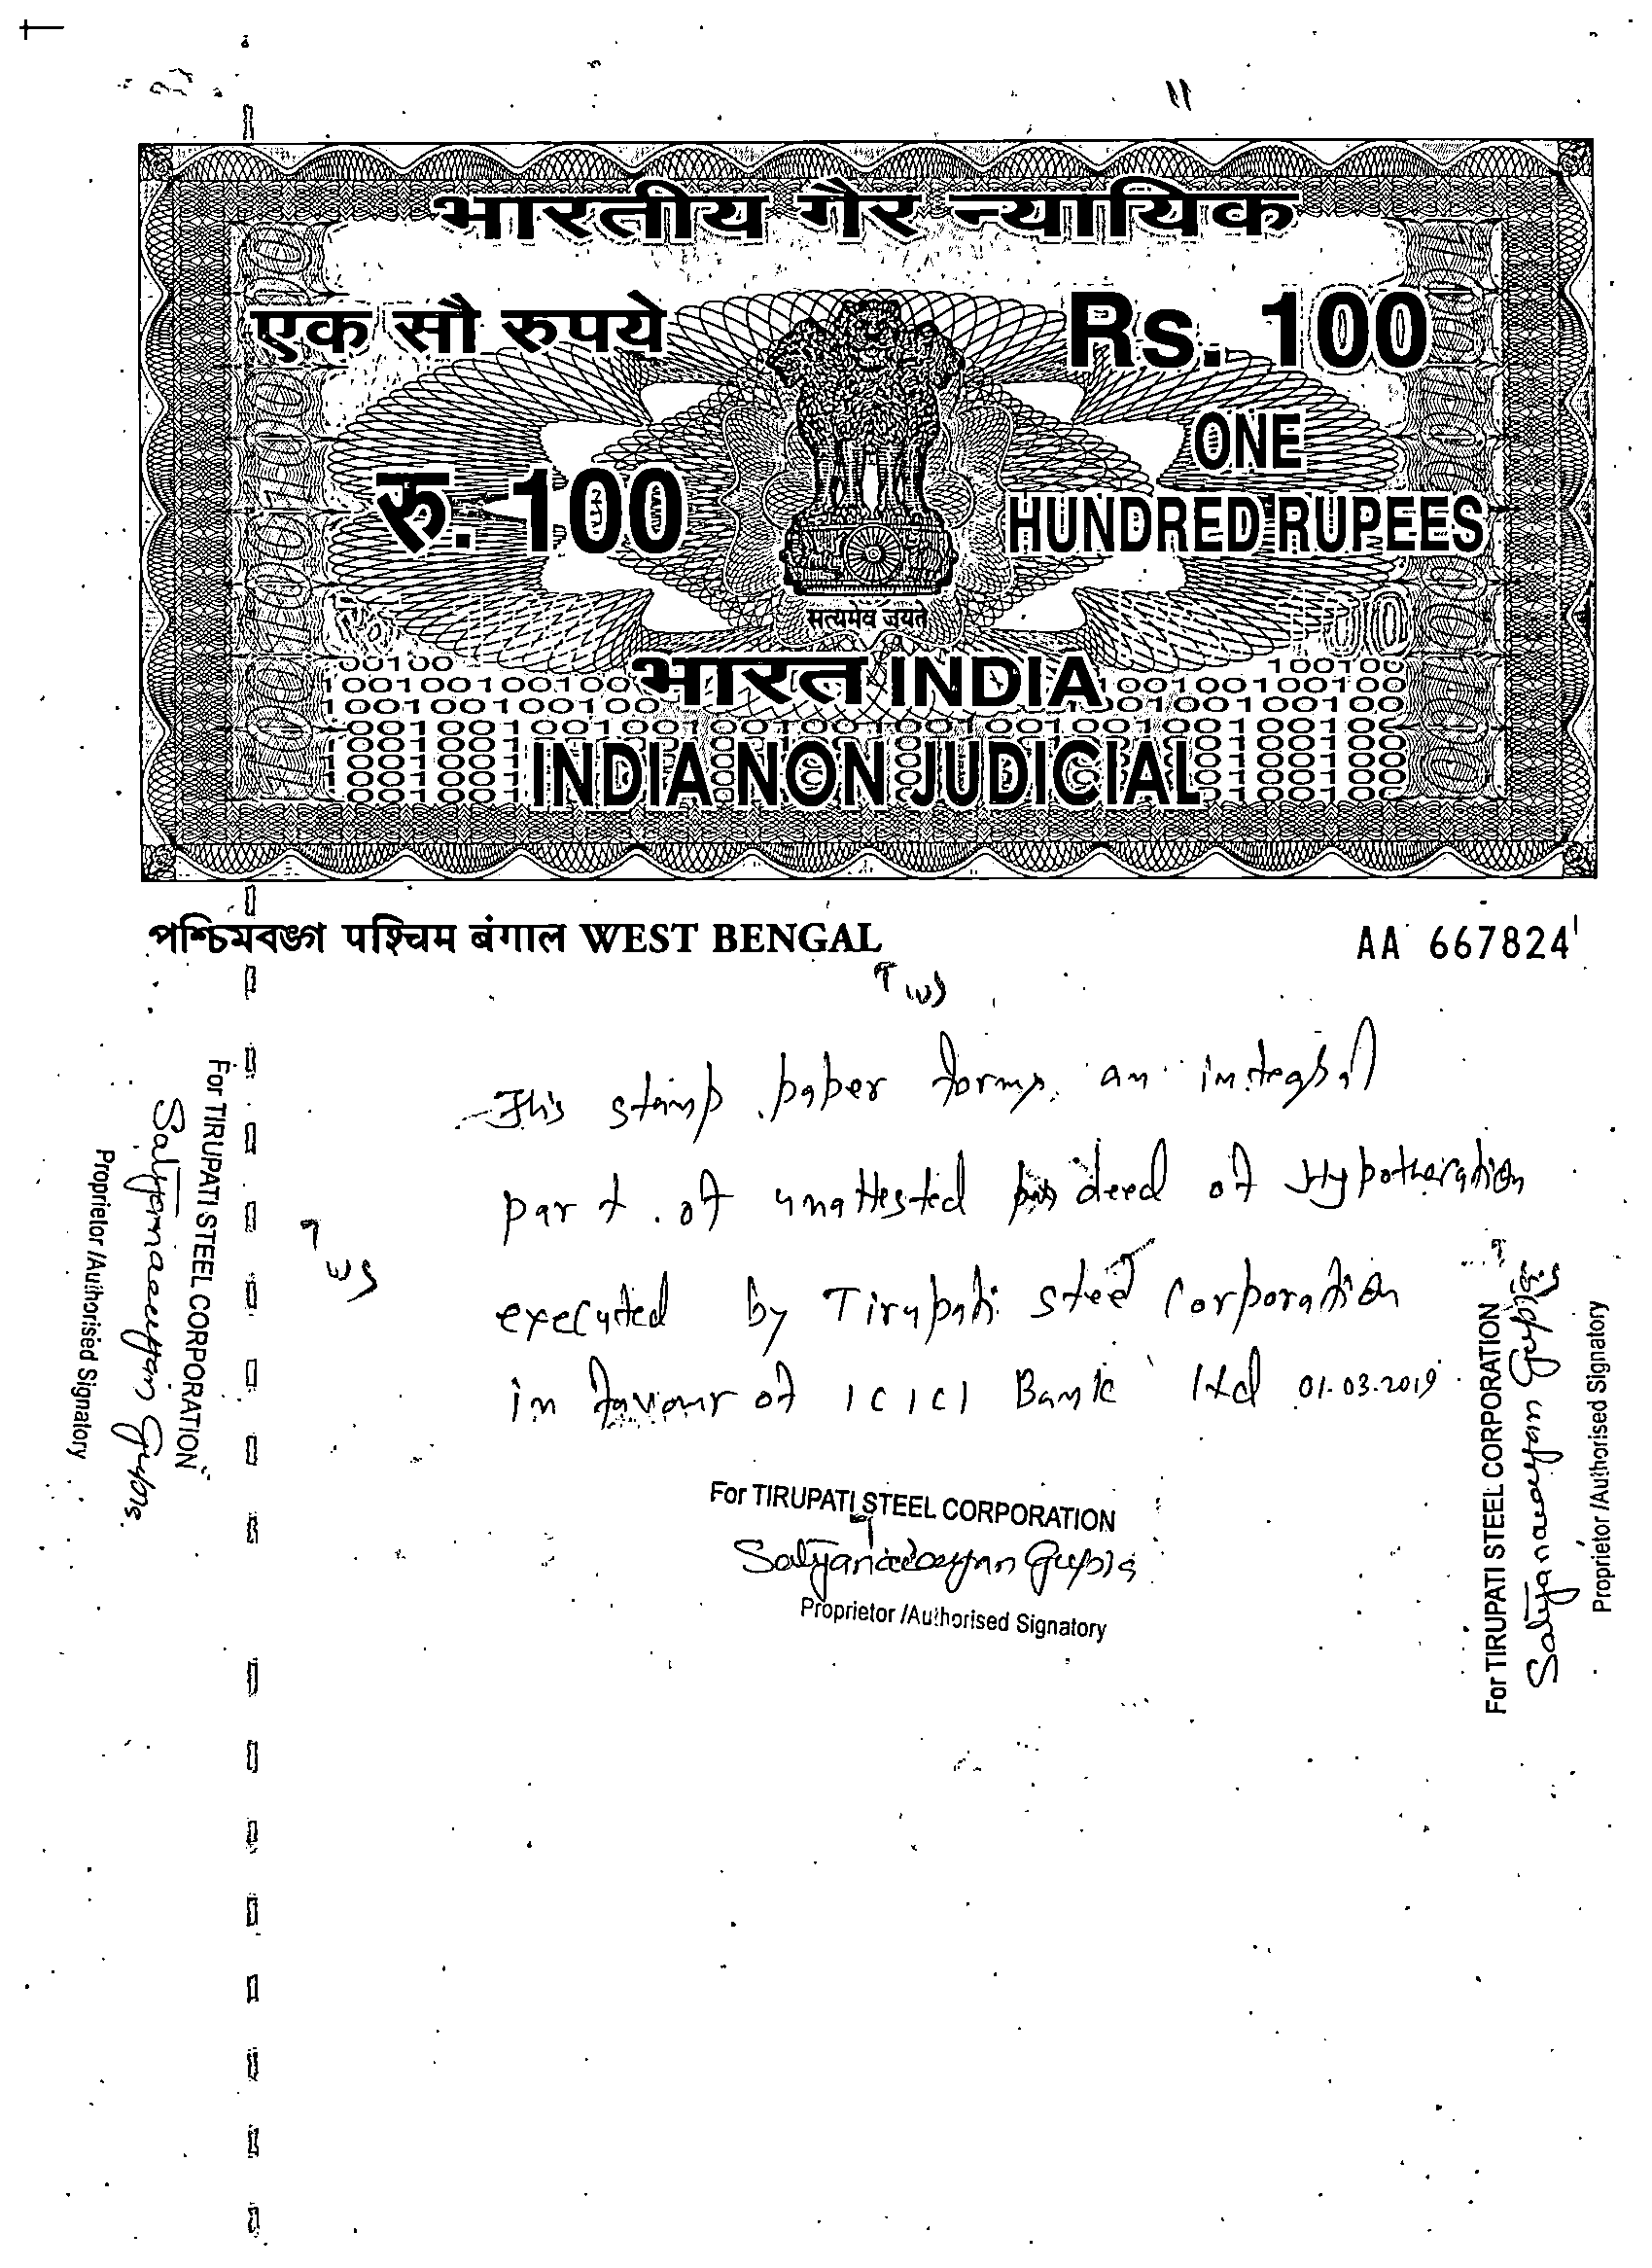 भारतीय गैर न्यायिक
एक सौ रुपये
Rs. 100
रु. 100
ONE
HUNDRED RUPEES
सत्यमेव जयते
भारत INDIA
INDIA NON JUDICIAL
পশ্চিমবঙ্গ पश्चिम बंगाल WEST BENGAL
AA 667824
This stamp paper forms an integral
part of unattested deed of Hypothecation
executed by Tirupati Steel Corporation
in favour of ICICI Bank Ltd 01.03.2019
For TIRUPATI STEEL CORPORATION
Satyanarayan Gupta
Proprietor /Authorised Signatory
For TIRUPATI STEEL CORPORATION
Satyanarayan Gupta
Proprietor /Authorised Signatory
For TIRUPATI STEEL CORPORATION
Satyanarayan Gupta
Proprietor /Authorised Signatory